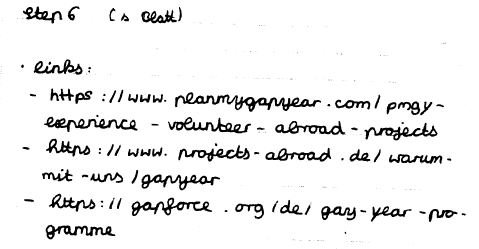 Step 6 (s Blatt)
· links:
- https://www.planmygapyear.com/pmgy-
experience - volunteer - abroad - projects
- https://www.projects-abroad.de/warum-
mit-uns/gapyear
- https://gapforce.org/de/gay-year-pro-
gramme